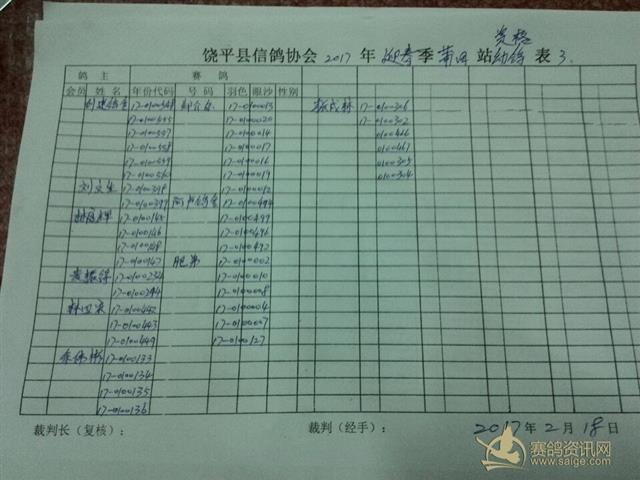 资格
饶平县信鸽协会 2017 年 迎春 季 莆田 站 幼鸽 表 3.
鸽 主 赛 鸽
会员 姓 名 年份代码 号 码 羽色 眼沙 性别
17-0100013 17-0100306
17-0100455 17-0100020 17-0100302
17-0100557 17-0100014 0100466
17-0100558 17-0100017 0100467
17-0100559 17-0100016 0100305
17-0100560 17-0100019 0100304
17-0100398 17-0100012
17-0100399 17-0100494
17-0100145 17-0100499
17-0100146 17-0100496
17-0100148 17-0100492
17-0100147 肥弟 17-0100002
17-0100234 17-0100010
17-0100244 17-0100008
17-0100442 17-0100004
17-0100443 17-0100007
17-0100449 17-0100127
17-0100133
17-0100134
17-0100135
17-0100136
裁判长（复核）： 裁判（经手）： 2017 年 2 月 18 日
赛鸽资讯网
www.saige.com